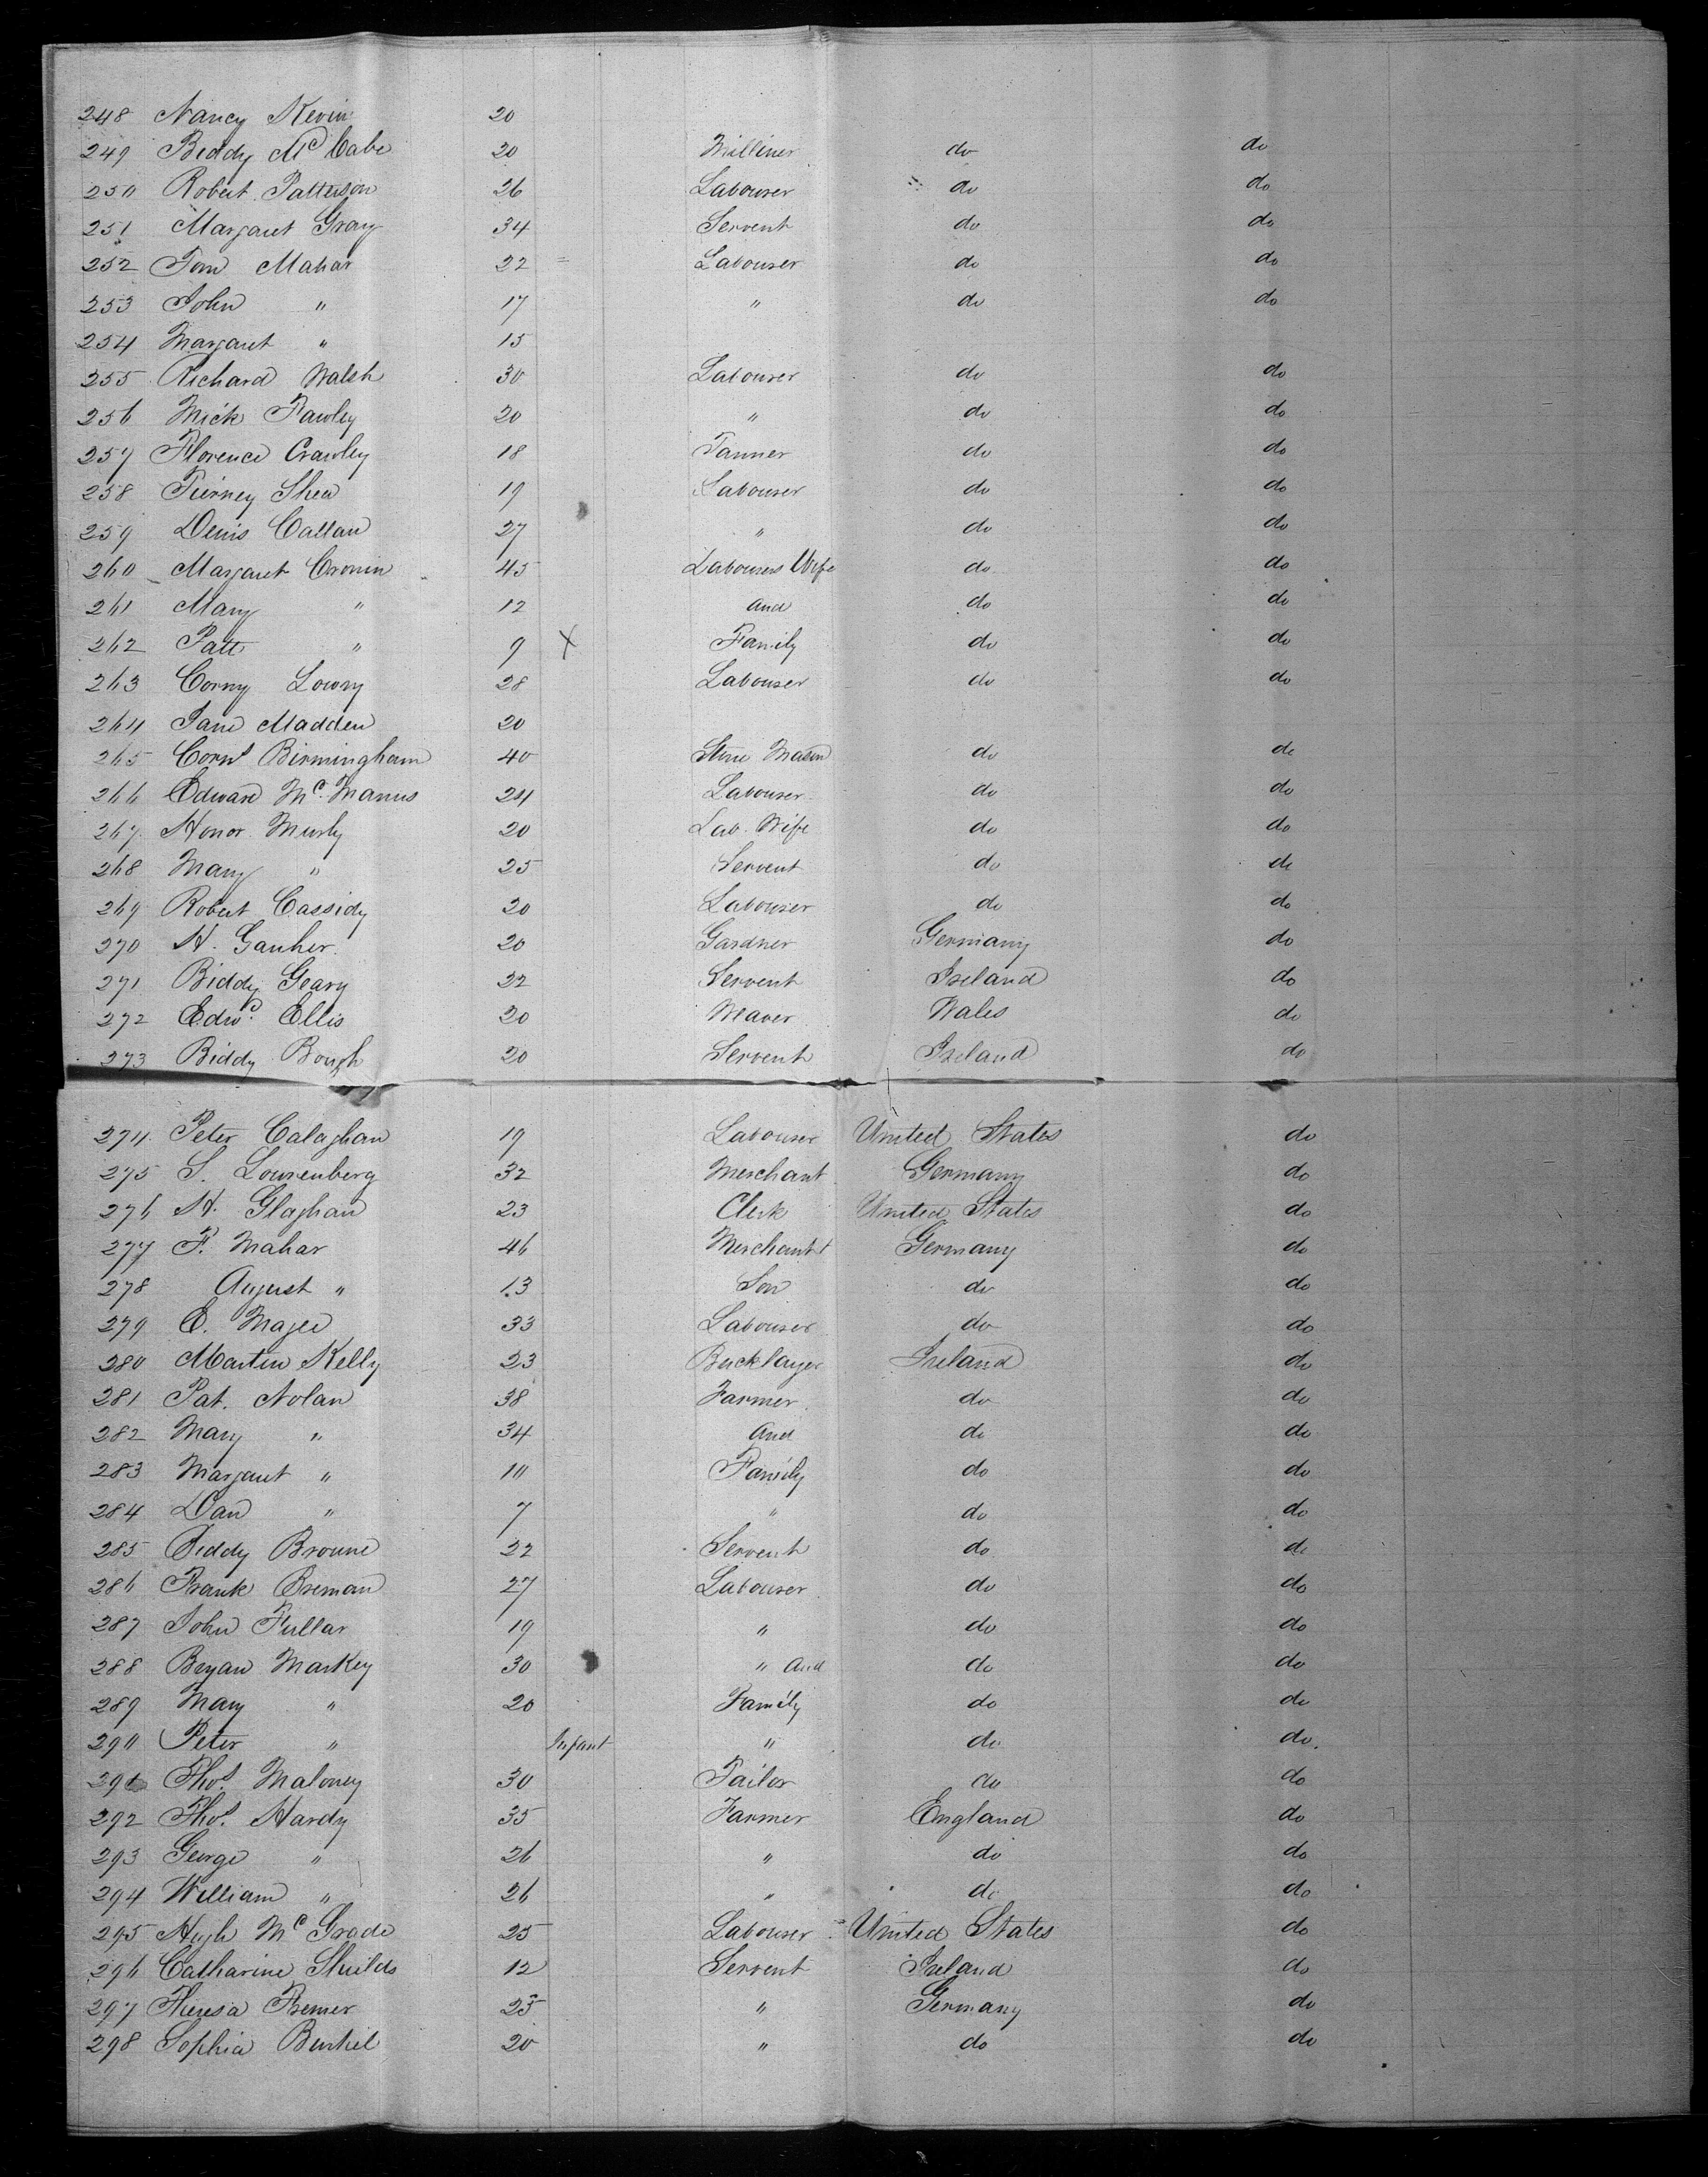 248 Nancy Kevin 20
249 Biddy McCabe 20 Milliner do do
250 Robert Patterson 26 Labourer do do
251 Margaret Gray 34 Servent do do
252 Tom Mahar 22 Labourer do do
253 John " 17 " do do
254 Margaret " 15
255 Richard Walsh 30 Labourer do do
256 Mick Fawley 20 " do do
257 Florence Crawley 18 Tanner do do
258 Tierney Shea 19 Labourer do do
259 Denis Callan 27 " do do
260 Margaret Cronin 45 Labourers Wife do do
261 Mary " 12 and do do
262 Patt " 9 X Family do do
263 Corny Lowry 28 Labourer do do
264 Jane Madden 20
265 Corns Birmingham 40 Stone Mason do do
266 Edward Mc.Manus 24 Labourer do do
267 Honor Murly 20 Lab. Wife do do
268 Mary " 25 Servent do do
269 Robert Cassidy 20 Labourer do do
270 H. Gauher 20 Gardner Germany do
271 Biddy Geary 22 Servent Ireland do
272 Edwd. Ellis 20 Weaver Wales do
273 Biddy Bough 20 Servent Ireland do
274 Peter Calaghan 19 Labourer United States do
275 S. Lourenberg 32 Merchant Germany do
276 H. Glaghan 23 Clerk United States do
277 F. Mahar 46 Merchant Germany do
278 August " 13 Son do do
279 E. Magee 33 Labourer do do
280 Martin Kelly 23 Bricklayer Ireland do
281 Pat. Nolan 38 Farmer do do
282 Mary " 34 and do do
283 Margaret " 10 Family do do
284 Dan " 7 " do do
285 Biddy Browne 22 Servent do do
286 Frank Breman 27 Labourer do do
287 John Fullar 19 " do do
288 Bryan Markey 30 " and do do
289 Mary " 20 Family do do
290 Peter " Infant " do do
291 Thos. Maloney 30 Tailor do do
292 Thos. Hardy 35 Farmer England do
293 George " 26 " do do
294 William " 26 " do do
295 Hugh McGrade 25 Labourer United States do
296 Catharine Shields 12 Servent Ireland do
297 Theresa Bremer 25 " Germany do
298 Sophia Burkel 20 " do do